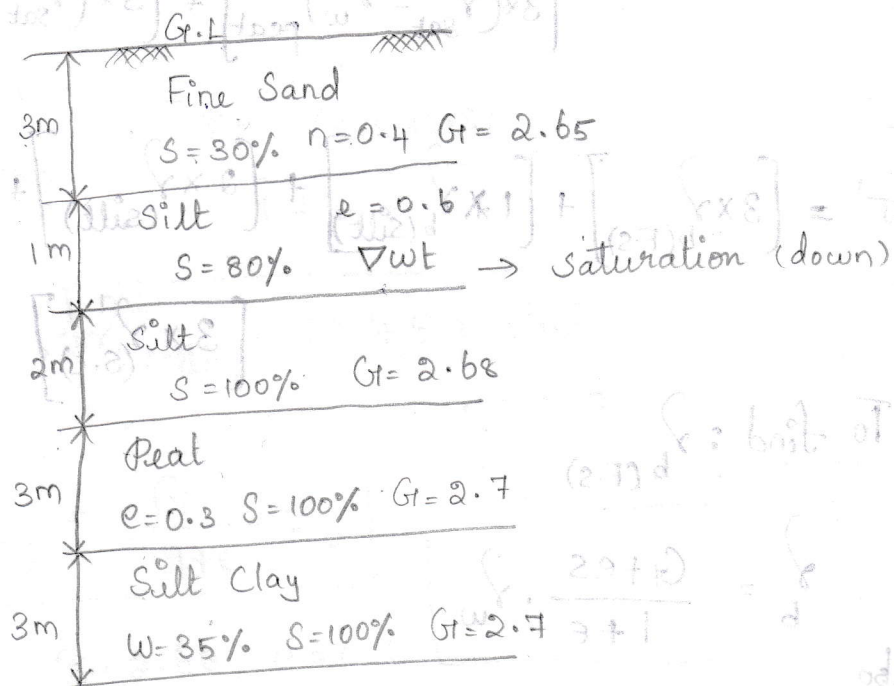 G.L
Fine Sand
3m
S=30% n=0.4 G=2.65
Silt e=0.6
1m
S=80% ∇wt → saturation (down)
Silt
2m
S=100% G=2.68
Peat
3m
e=0.3 S=100% G=2.7
Silt Clay
3m
W=35% S=100% G=2.7